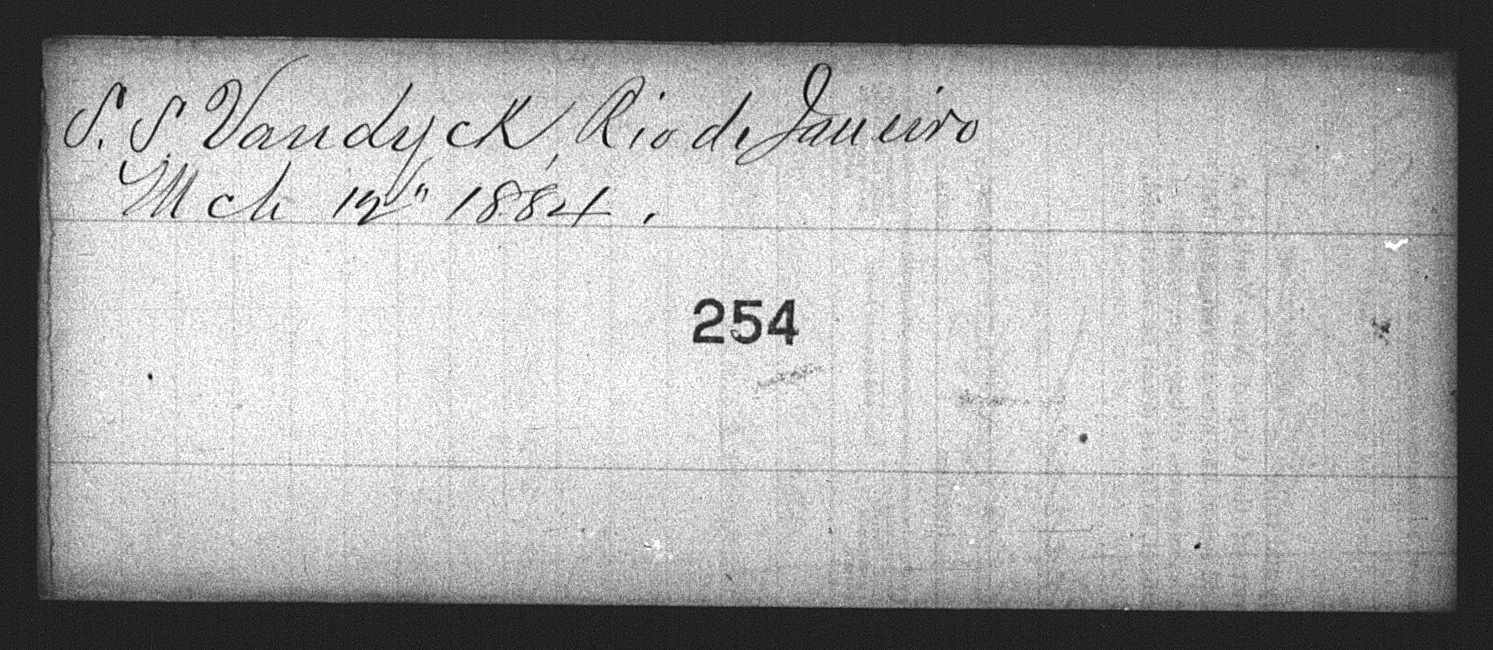 S. S. Vandyck, Rio de Janeiro
Mch 12" 1884.
254